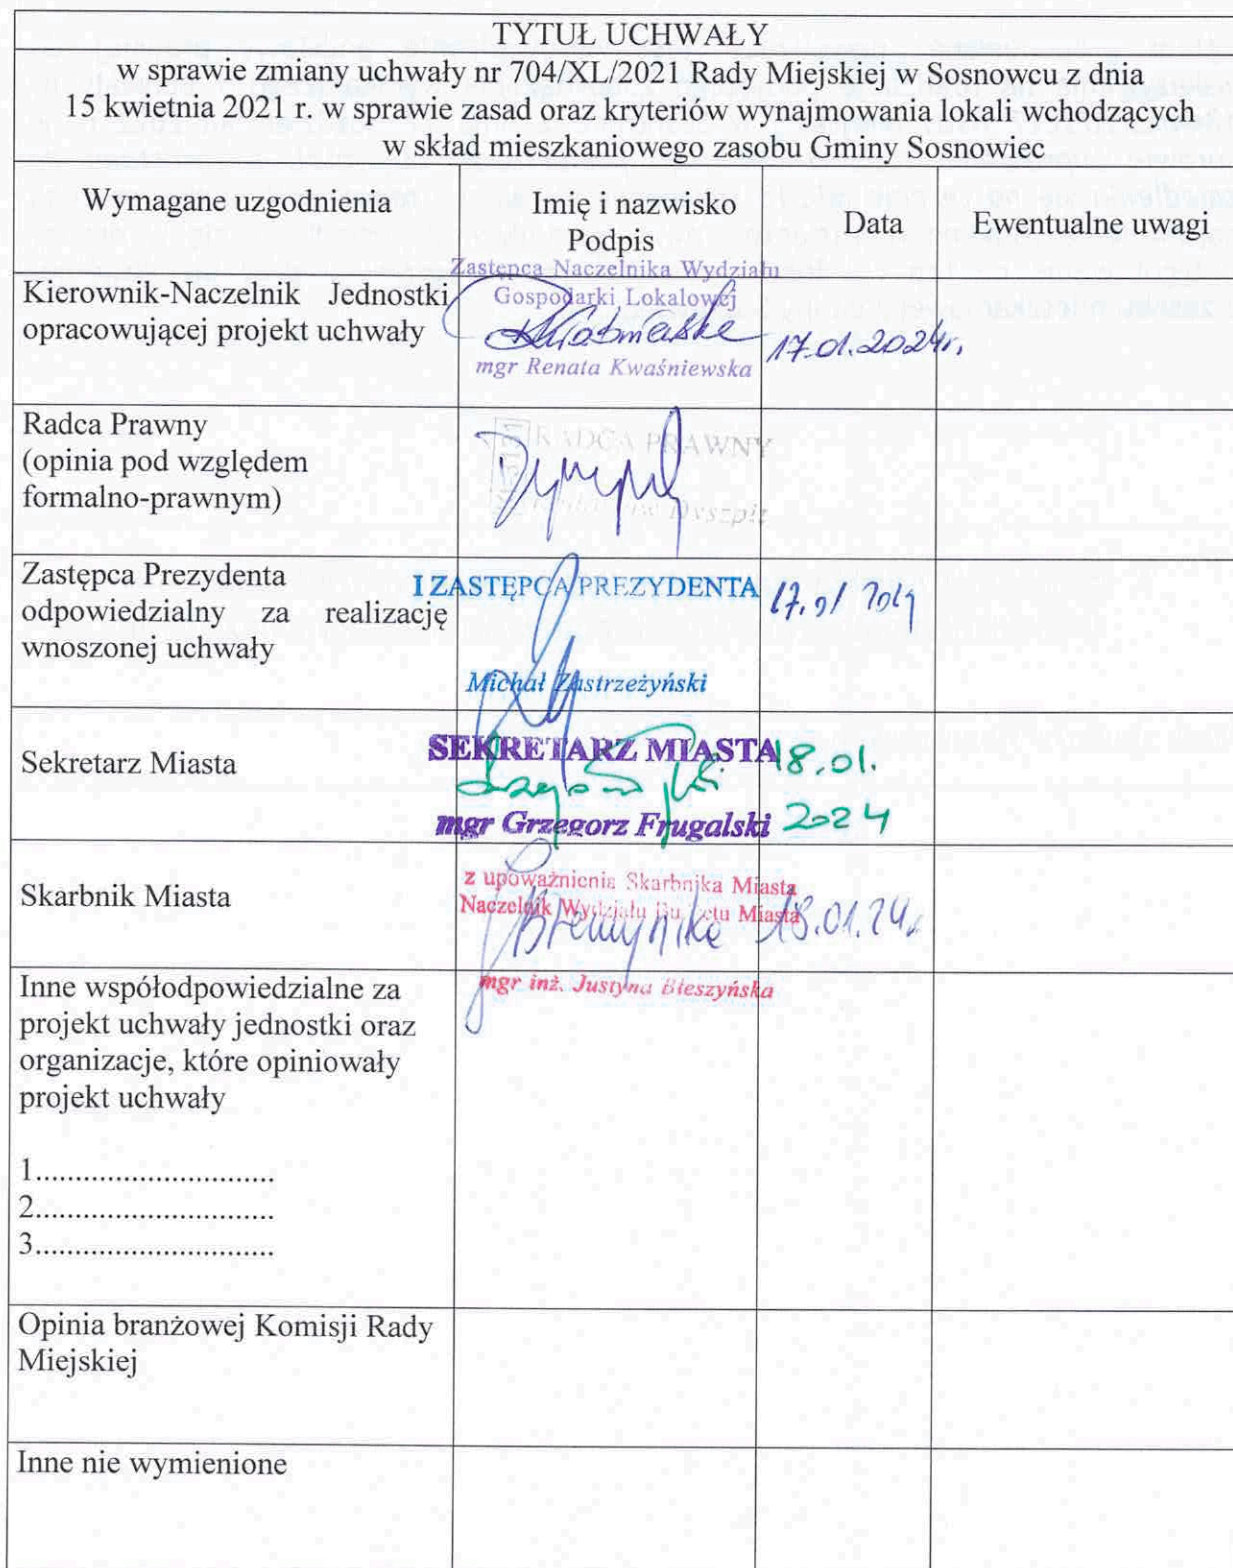 TYTUŁ UCHWAŁY
w sprawie zmiany uchwały nr 704/XL/2021 Rady Miejskiej w Sosnowcu z dnia
15 kwietnia 2021 r. w sprawie zasad oraz kryteriów wynajmowania lokali wchodzących
w skład mieszkaniowego zasobu Gminy Sosnowiec
Wymagane uzgodnienia
Imię i nazwisko
Podpis
Data
Ewentualne uwagi
Kierownik-Naczelnik Jednostki
opracowującej projekt uchwały
Zastępca Naczelnika Wydziału
Gospodarki Lokalowej
mgr Renata Kwaśniewska
17.01.2024r.
Radca Prawny
(opinia pod względem
formalno-prawnym)
RADCA PRAWNY
Dyszpit
Zastępca Prezydenta
odpowiedzialny za realizację
wnoszonej uchwały
I ZASTĘPCA PREZYDENTA
Michał Zastrzeżyński
17.01 2024
Sekretarz Miasta
SEKRETARZ MIASTA
mgr Grzegorz Frugalski
18.01.
2024
Skarbnik Miasta
z upoważnienia Skarbnika Miasta
Naczelnik Wydziału Budżetu Miasta
mgr inż. Justyna Bieszyńska
18.01.24r
Inne współodpowiedzialne za
projekt uchwały jednostki oraz
organizacje, które opiniowały
projekt uchwały
1..............................
2..............................
3..............................
Opinia branżowej Komisji Rady
Miejskiej
Inne nie wymienione